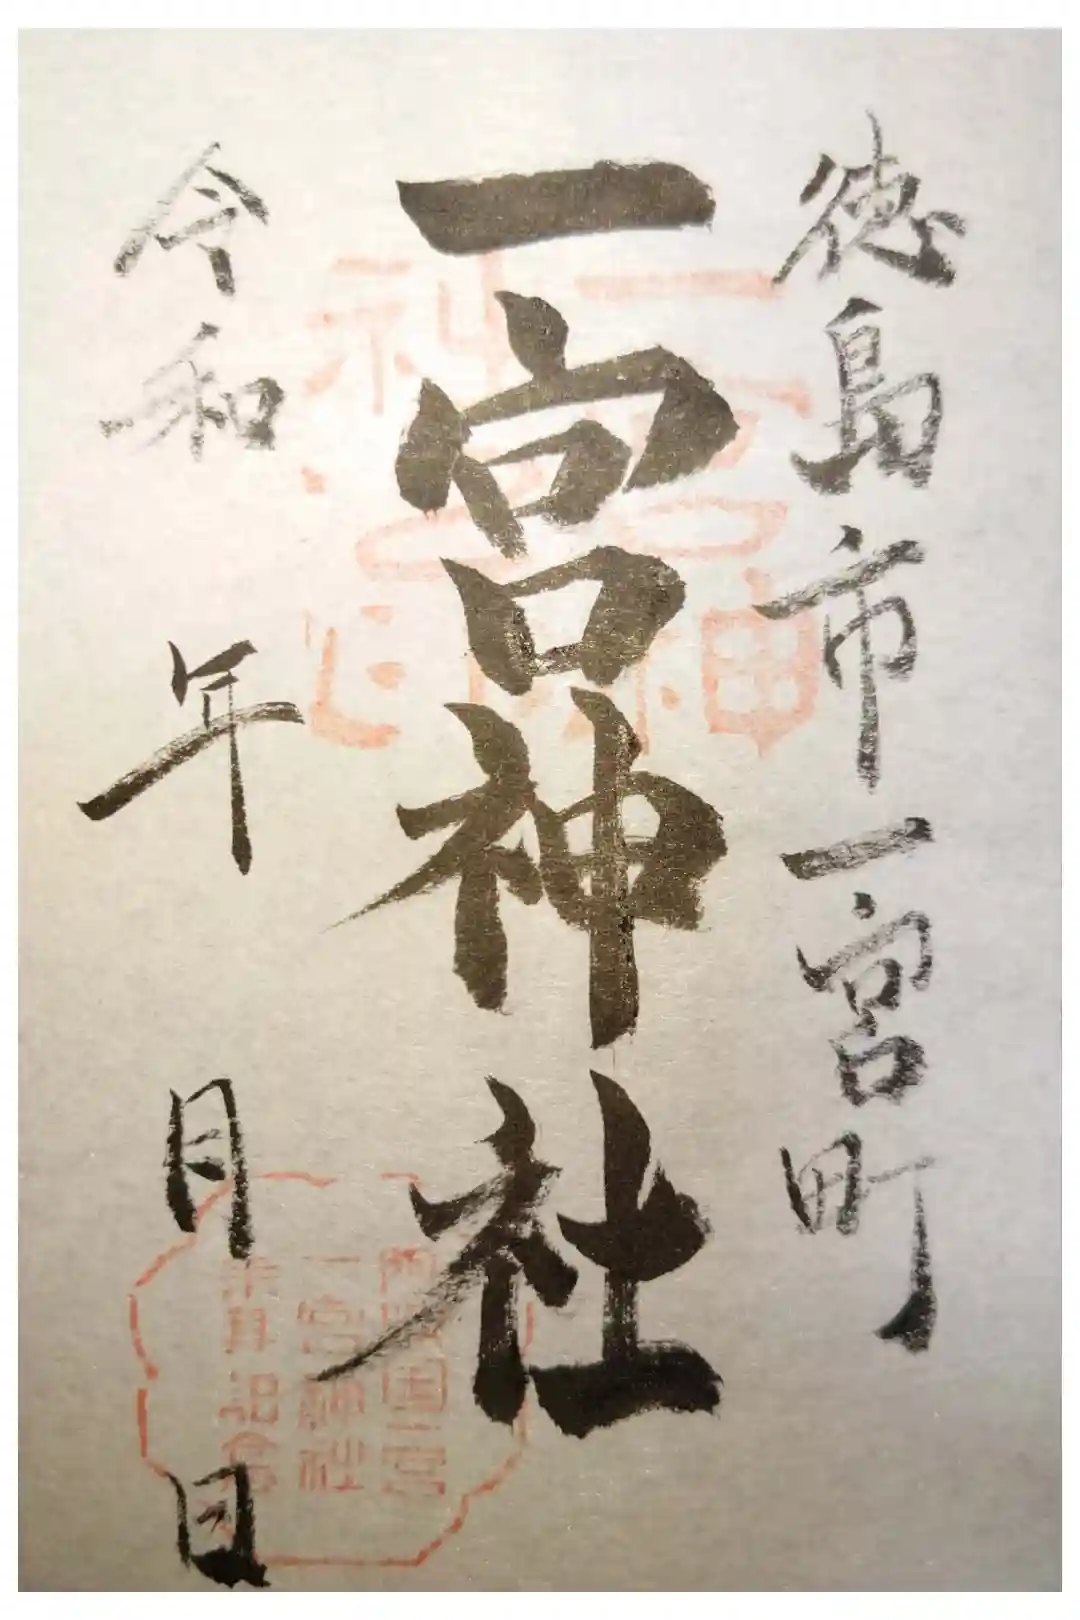 徳島市一宮町
一宮神社
令和　年　月　日
一宮神社
阿波国一宮
一宮神社
参拝記念